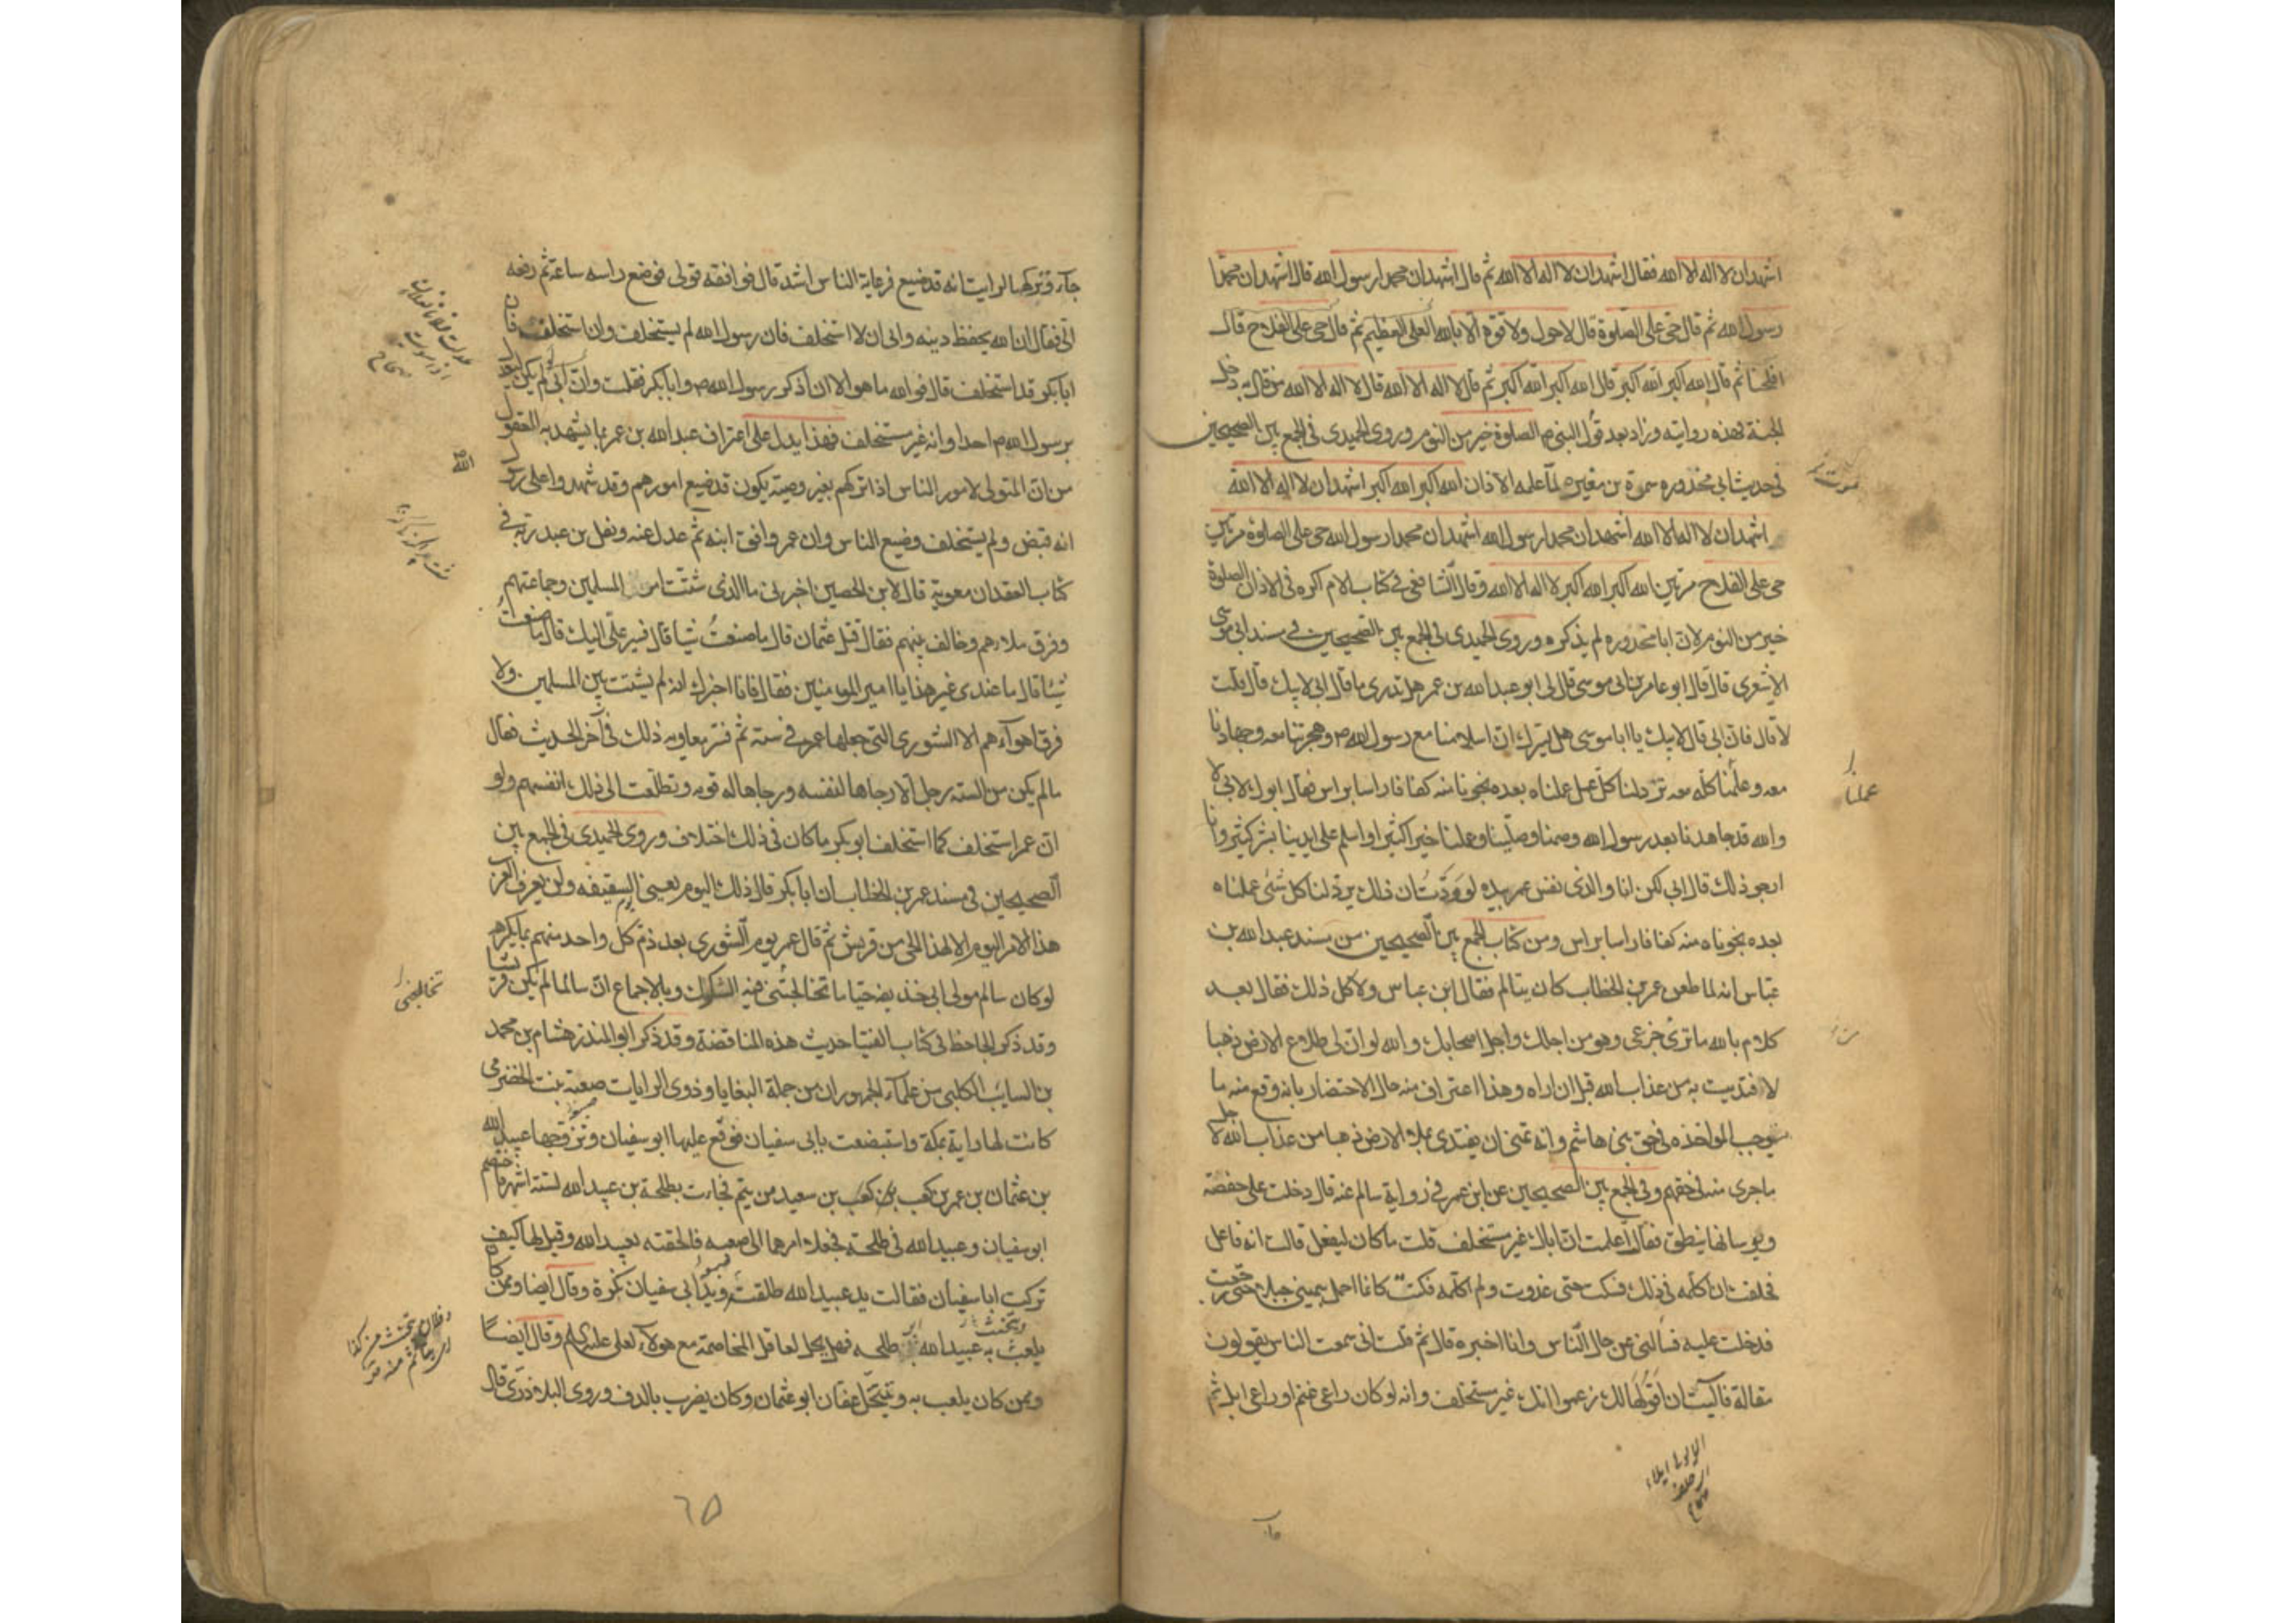 اشهد ان لا اله الا الله فقال اشهد ان لا اله الا الله ثم قال اشهد ان محمدا رسول الله قال اشهد ان محمدا
رسول الله ثم قال حي على الصلوة قال لا حول ولا قوة الا بالله العلي العظيم ثم قال حي على الفلاح قال
افلحنا ثم قال الله اكبر الله اكبر قال الله اكبر الله اكبر ثم قال لا اله الا الله قال لا اله الا الله من قال به دخل
الجنة هذه روايته وزاد بعد قول النبي ص الصلوة خير من النوم وروى الحميدي في الجمع بين الصحيحين
في حديث ابي محذوره سمرة بن مغيره لما علمه الاذان الله اكبر الله اكبر اشهد ان لا اله الا الله
اشهد ان لا اله الا الله اشهد ان محمدا رسول الله اشهد ان محمدا رسول الله حي على الصلوة مرتين
حي على الفلاح مرتين الله اكبر الله اكبر لا اله الا الله وقال الشافعي في كتاب الام اكره في الاذان الصلوة
خير من النوم لان ابا محذوره لم يذكره وروى الحميدي في الجمع بين الصحيحين في مسند ابي موسى
الاشعري قال قال ابو عامر بن ابي موسى قال لي ابو عبد الله بن عمر هل تدري ما قال ابي لابيك قال قلت
لا قال فان ابي قال لابيك يا ابا موسى هل يسرك ان اسلامنا مع رسول الله ص وهجرتنا معه وجهادنا
معه وعلمنا كله معه تردلنا كل عمل علمناه بعده نجونا منه كفافا راسا براس فقال ابوك لابي لا
والله قد جاهدنا بعد رسول الله وصمنا وصلينا وعملنا خيرا كثيرا واسلم على ايدينا بشر كثير وانا
ارجو ذلك قال ابي لكن انا والذي نفس عمر بيده لوددت ان ذلك يرد لنا كل شئ عملناه
بعده نجوناه منه كفافا راسا براس ومن كتاب الجمع بين الصحيحين من مسند عبد الله بن
عباس انه لما طعن عمر بن الخطاب كان يتالم فقال ابن عباس ولا كل ذلك فقال بعد
كلام بالله ما ترى جزعي وهو من اجلك واجل اصحابك والله لو ان لي طلاع الارض ذهبا
لافتديت به من عذاب الله قبل ان اراه وهذا اعتراف منه حال الاحتضار بانه وقع منه ما
يوجب المواخذه في حق بني هاشم وانه تمنى ان يفتدي بملا الارض ذهبا من عذاب الله لاجل
ما جرى منه في حقهم وفي الجمع بين الصحيحين عن ابن عمر في رواية سالم عنه قال دخلت على حفصة
ونوساتها ينطق فقالت اعلمت ان اباك غير مستخلف قلت ما كان ليفعل قالت انه فاعل
فحلفت ان اكلمه في ذلك فسكت حتى غدوت ولم اكلمه فكنت كانما احمل بيميني جبلا حتى رجعت
فدخلت عليه فسالني عن حال الناس وانا اخبره قال ثم قلت اني سمعت الناس يقولون
مقالة فاليت ان اقولها لك زعموا انك غير مستخلف وانه لو كان راعي غنم او راعي ابل ثم
عملنا
جآء وتركها لرايت انه قد ضيع فرعاية الناس اشد قال فوافقه قولي فوضع راسه ساعة ثم رفعه
الي فقال ان الله يحفظ دينه واني ان لا استخلف فان رسول الله لم يستخلف وان استخلف فان
ابا بكر قد استخلف قال فوالله ما هو الا ان ذكر رسول الله ص وابا بكر فقلت وان ابي لم يكن ليعدل
برسول الله ص احدا وانه غير مستخلف فهذا يدل على اعتراف عبد الله بن عمر بما يشهد به العقول
من ان المتولي لامور الناس اذا تركهم بغير وصية يكون قد ضيع امورهم وقد شهدوا على رسول
الله ص
انه قبض ولم يستخلف وضيع الناس وان عمر وافق ابنه ثم عدل عنه ونقل بن عبد ربه في
كتاب العقد ان معوية قال لابن الحصين اخبرني ما الذي شتت امر المسلمين وجماعتهم
وفرق ملاءهم وخالف بينهم فقال قتل عثمان قال ما صنعت شيا قال فسير علي اليك قال ما صنعت
شيا قال ما عندي غير هذا يا امير المومنين فقال فانا اخبرك انه لم يشتت بين المسلمين ولا
فرق اهوآءهم الا الشورى التي جعلها عمر في ستة ثم فسر معاويه ذلك في آخر الحديث فقال
ما لم يكن من الستة رجل الا رجاها لنفسه ورجاها له قومه وتطلعت الى ذلك انفسهم ولو
ان عمر استخلف كما استخلف ابو بكر ما كان في ذلك اختلاف وروى الحميدي في الجمع بين
الصحيحين في مسند عمر بن الخطاب ان ابا بكر قال ذلك اليوم يعني يوم السقيفه ولن يعرف العرب
هذا الامر اليوم الا لهذا الحي من قريش ثم قال عمر يوم الشورى بعد ذم كل واحد منهم بما يكره
لو كان سالم مولى ابي حذيفه حيا ما تخالجني فيه الشكوك وبالاجماع ان سالما لم يكن قرشيا
وقد ذكر الجاحظ في كتاب الفتيا حديث هذه المناقضة وقد ذكر ابو المنذر هشام بن محمد
بن السايب الكلبي من علمآء الجمهور ان من جملة البغايا وذوي الرايات صعبة بنت الحضرمي
كانت لها راية بمكة واستبضعت بابي سفيان فوقع عليها ابو سفيان وتزوجها عبيد الله
بن عثمان بن عمر بن كعب بن سعيد من يتم فجاءت بطلحة بن عبيد الله لستة اشهر فاختصم
ابو سفيان وعبيد الله في طلحة فجعلا امرهما الى صعبه فالحقته بعبيد الله وقيل لها كيف
تركت ابا سفيان فقالت يد عبيد الله طلقة ويد ابي سفيان كزة وقال ايضا وممن كان
يلعب به ويتخنث عبيد الله ابو طلحه فهل يحل لعاقل المخاصمة مع هولآء لعلي عليه السلم وقال ايضا
وممن كان يلعب به ويتخل عفان ابو عثمان وكان يضرب بالدف وروى البلاذري قال
تخالجني
٦٥